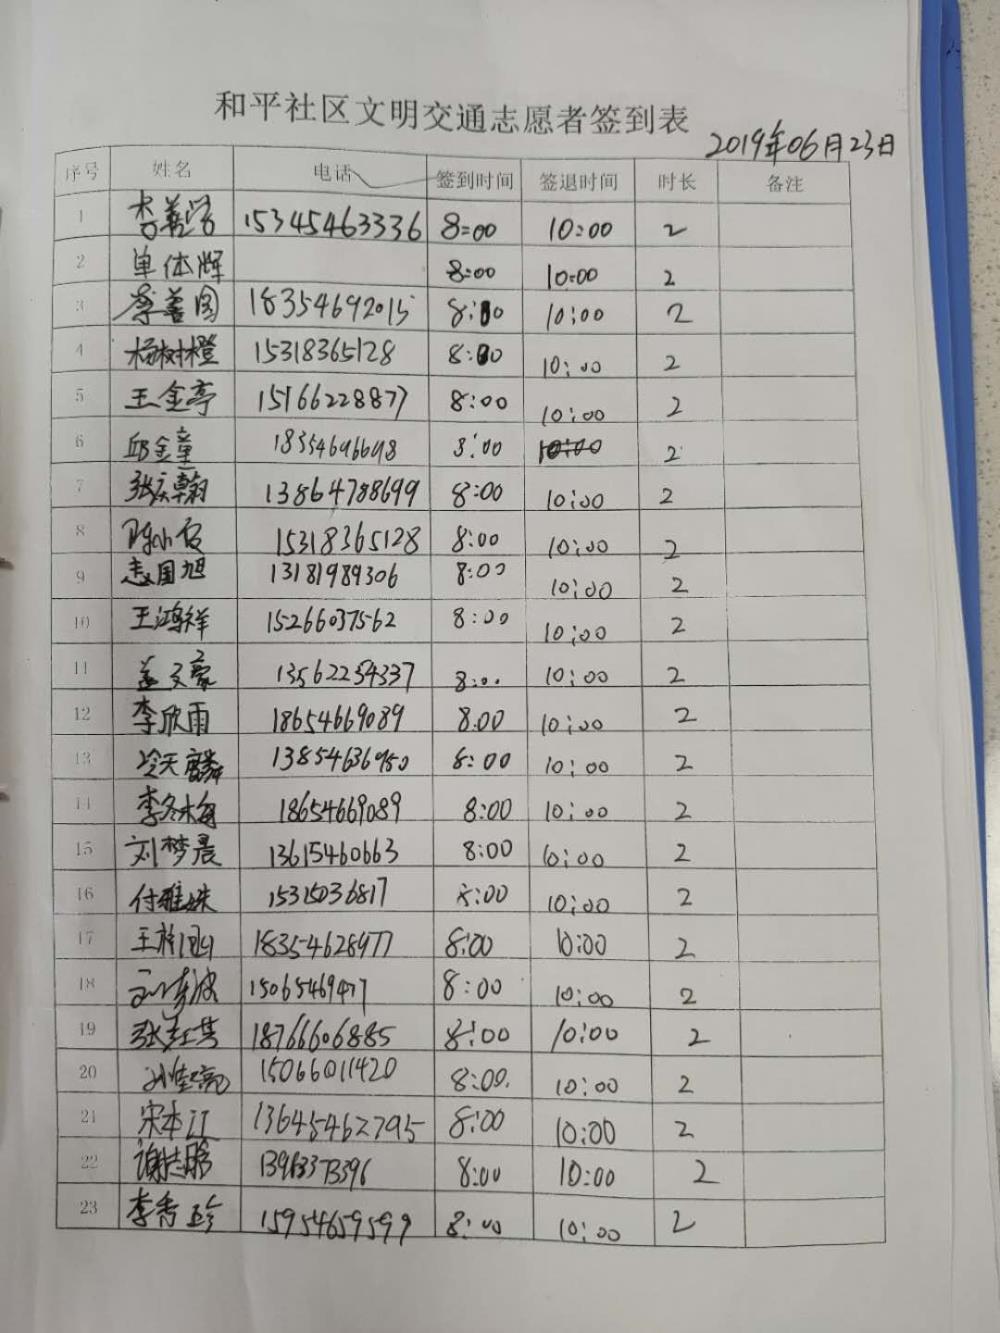 和平社区文明交通志愿者签到表
2019年06月23日
序号 姓名 电话 签到时间 签退时间 时长 备注
1 李善学 15345463336 8:00 10:00 2
2 单体辉 8:00 10:00 2
3 李善图 18354692015 8:00 10:00 2
4 杨树橙 15318365128 8:00 10:00 2
5 王金亭 15166228877 8:00 10:00 2
6 邱金童 18354696698 8:00 10:00 2
7 张庆翰 13864788699 8:00 10:00 2
8 陈小 15318365128 8:00 10:00 2
9 国旭 13181989306 8:00 10:00 2
10 王鸿祥 15266037562 8:00 10:00 2
11 孟文豪 13562254337 8:00 10:00 2
12 李欣雨 18654669089 8:00 10:00 2
13 冷天麟 13854636950 8:00 10:00 2
14 李冬梅 18654669089 8:00 10:00 2
15 刘梦晨 13615460663 8:00 10:00 2
16 付雅姝 15315036817 8:00 10:00 2
17 王 18354628977 8:00 10:00 2
18 波 15065469477 8:00 10:00 2
19 张 18766606885 8:00 10:00 2
20 孙佳亮 15066011420 8:00 10:00 2
21 宋本江 13645462795 8:00 10:00 2
22 谢志鹏 13963373396 8:00 10:00 2
23 李秀珍 15954659599 8:00 10:00 2